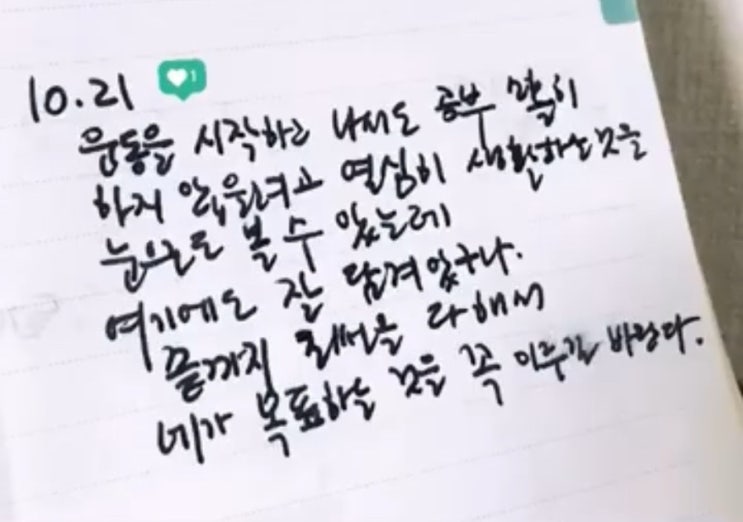 10.21 1
운동을 시작하고 나서도 공부 소홀히
하지 않으려고 열심히 생활하는 것을
눈으로도 볼 수 있는데
여기에도 잘 담겨있구나.
끝까지 최선을 다해서
네가 목표하는 것을 꼭 이루길 바란다.